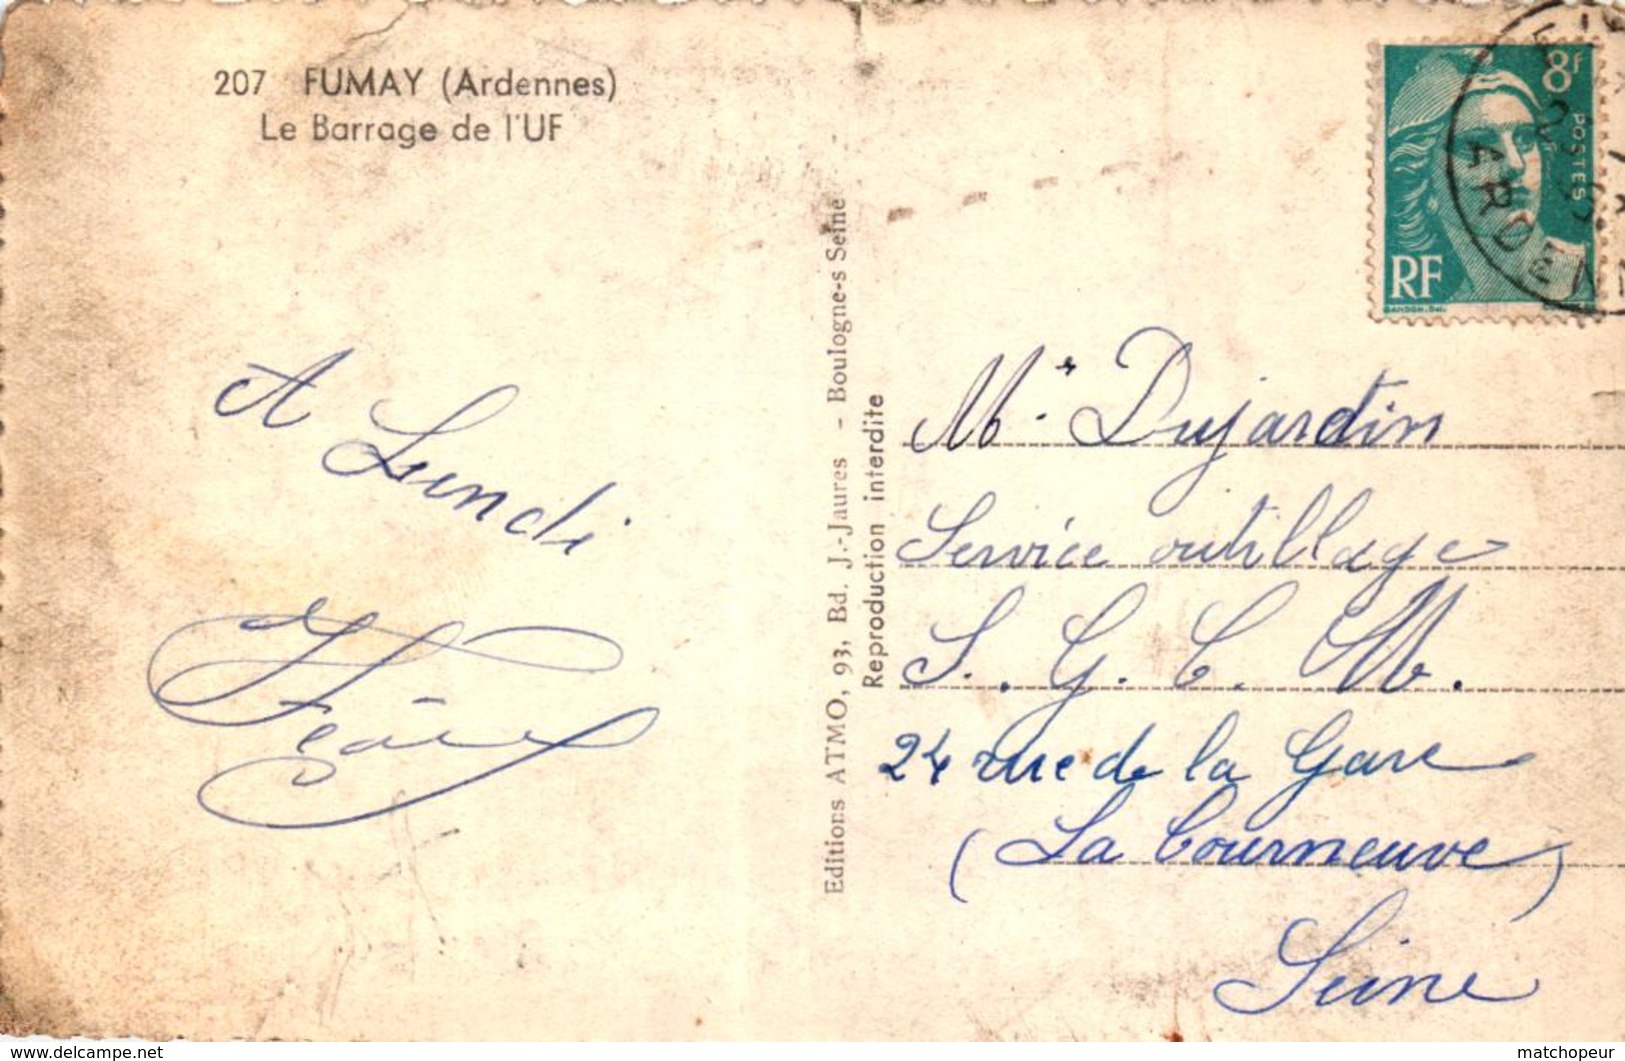 207 FUMAY (Ardennes)
Le Barrage de l'UF
A
Lundi
Editions ATMO, 93, Bd. J.-Jaures - Boulogne-s Seine
Reproduction interdite
8f
POSTES
RF
GANDON. DEL.
ARDEN
Mr. Dujardin
Service outillage
S. G. C. M.
24 rue de la Gare
(La Courneuve)
Seine
www.delcampe.net
matchopeur